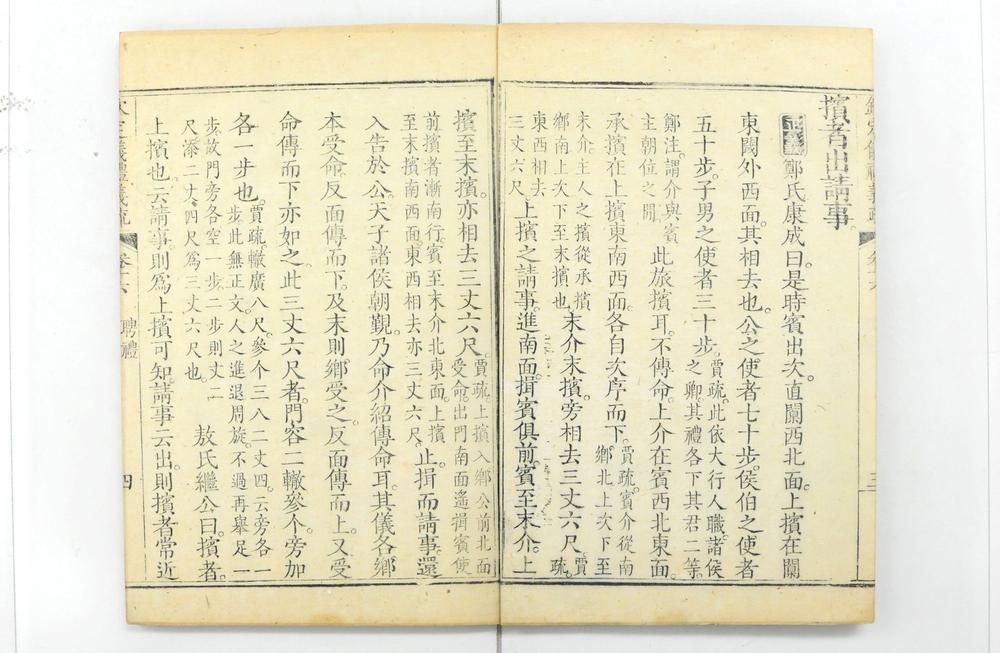 擯者出請事。
正義鄭氏康成曰。是時賓出次。直闑西北面。上擯在闑
東閾外西面。其相去也。公之使者七十步。侯伯之使者
五十步。子男之使者三十步。賈疏。此依大行人職。諸侯
之卿。其禮各下其君二等。
鄭注。謂介與賓
主朝位之閒。此旅擯耳。不傳命。上介在賓西北東面。
承擯在上擯東南西面。各自次序而下。賈疏。賓介從南
鄉北。上次下至
末介。主人之擯從承擯
鄉南。上次下至末擯也。末介末擯。旁相去三丈六尺。賈
疏。
東西相去
三丈六尺。上擯之請事。進南面。揖賓俱前。賓至末介。上
三
擯至末擯。亦相去三丈六尺。賈疏。上擯入鄉公前北面
受命。出門南面遙揖賓使
前。擯者漸南行。賓至末介北東面。上擯
至末擯南西面。東西相去亦三丈六尺。止揖而請事。還
入告於公。天子諸侯朝覲。乃命介紹傳命耳。其儀各鄉
本受命。反面傳而下。及末則鄉受之。反面傳而上。又受
命傳而下。亦如之。此三丈六尺者。門容二轍參个。旁加
各一步也。賈疏。轍廣八尺。參个三八二丈四。云旁各一
步。此無正文。人之進退周旋。不過再舉足一
步。故門旁各空一步。二步則丈二
尺。添二丈四尺。爲三丈六尺也。敖氏繼公曰。擯者。
上擯也。云請事。則爲上擯可知。請事云出。則擯者常近
儀禮義疏 卷十六 聘禮 四